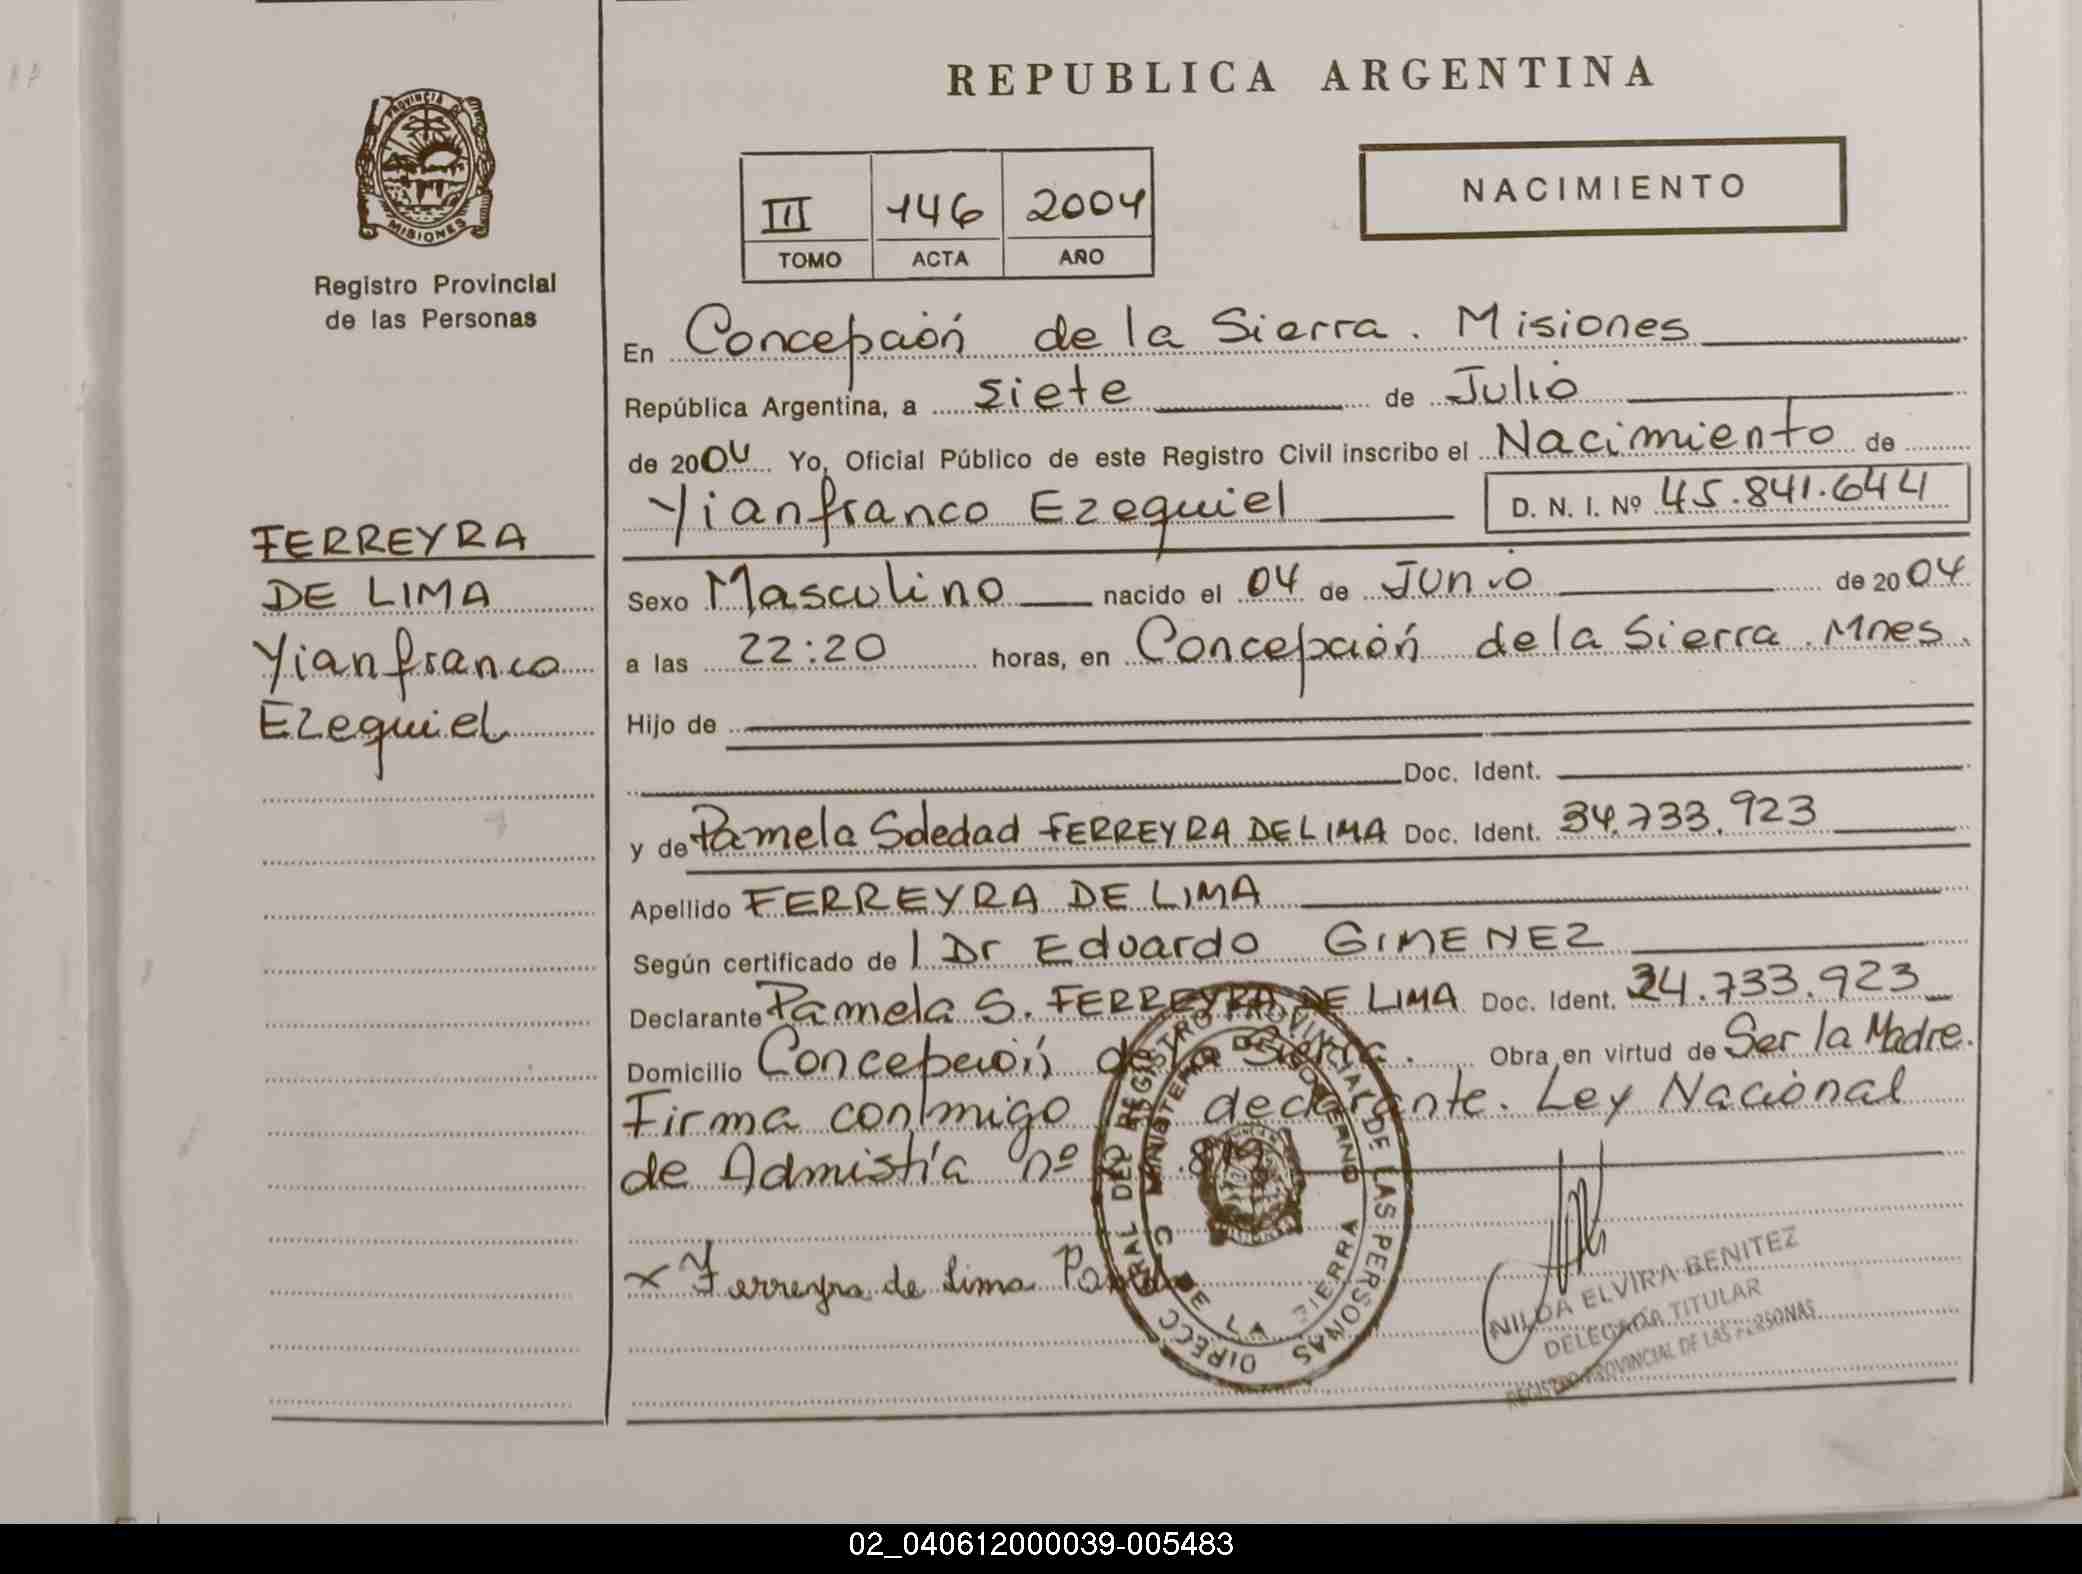 REPUBLICA ARGENTINA
PROVINCIA DE
MISIONES
Registro Provincial
de las Personas
III 146 2004
TOMO ACTA AÑO
NACIMIENTO
En Concepción de la Sierra. Misiones
República Argentina, a siete de Julio
de 2004 Yo, Oficial Público de este Registro Civil inscribo el Nacimiento de
Yianfranco Ezequiel D. N. I. Nº 45.841.644
FERREYRA
DE LIMA
Yianfranco
Ezequiel
Sexo Masculino nacido el 04 de Junio de 2004
a las 22:20 horas, en Concepción de la Sierra. Mnes.
Hijo de
Doc. Ident.
y de Pamela Soledad FERREYRA DE LIMA Doc. Ident. 34.733.923
Apellido FERREYRA DE LIMA
Según certificado de l Dr Eduardo GIMENEZ
Declarante Pamela S. FERREYRA DE LIMA Doc. Ident. 34.733.923
Domicilio Concepción de la Sierra. Obra en virtud de Ser la Madre.
Firma conmigo la declarante. Ley Nacional
de Admistía nº
x Ferreyra de Lima
REGISTRO PROVINCIAL DE LAS PERSONAS
MINISTERIO DE GOBIERNO
C. DE LA SIERRA
NILDA ELVIRA BENITEZ
DELEGADA TITULAR
REGISTRO PROVINCIAL DE LAS PERSONAS
02_040612000039-005483